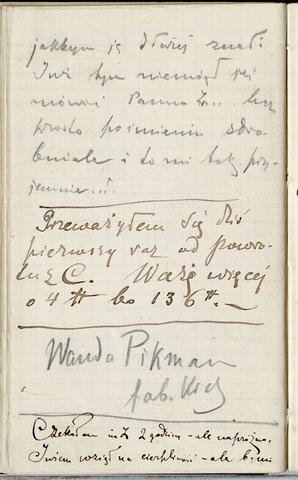 jakbym ją dawniej znał.
Już tym niemógł się
mówić Panna Z... lecz
prosto poimieniu zdro-
bniale i to mi tak przy-
jemnie...!
Przeważyłem się dziś
pierwszy raz od powro-
tu z C. Ważę więcej
o 4 ℔ bo 136 ℔.—
Wanda Pikman
fab. Koch
Czekałem 2 godzin – ale napróżno.
wziął na cierpliwość – ale